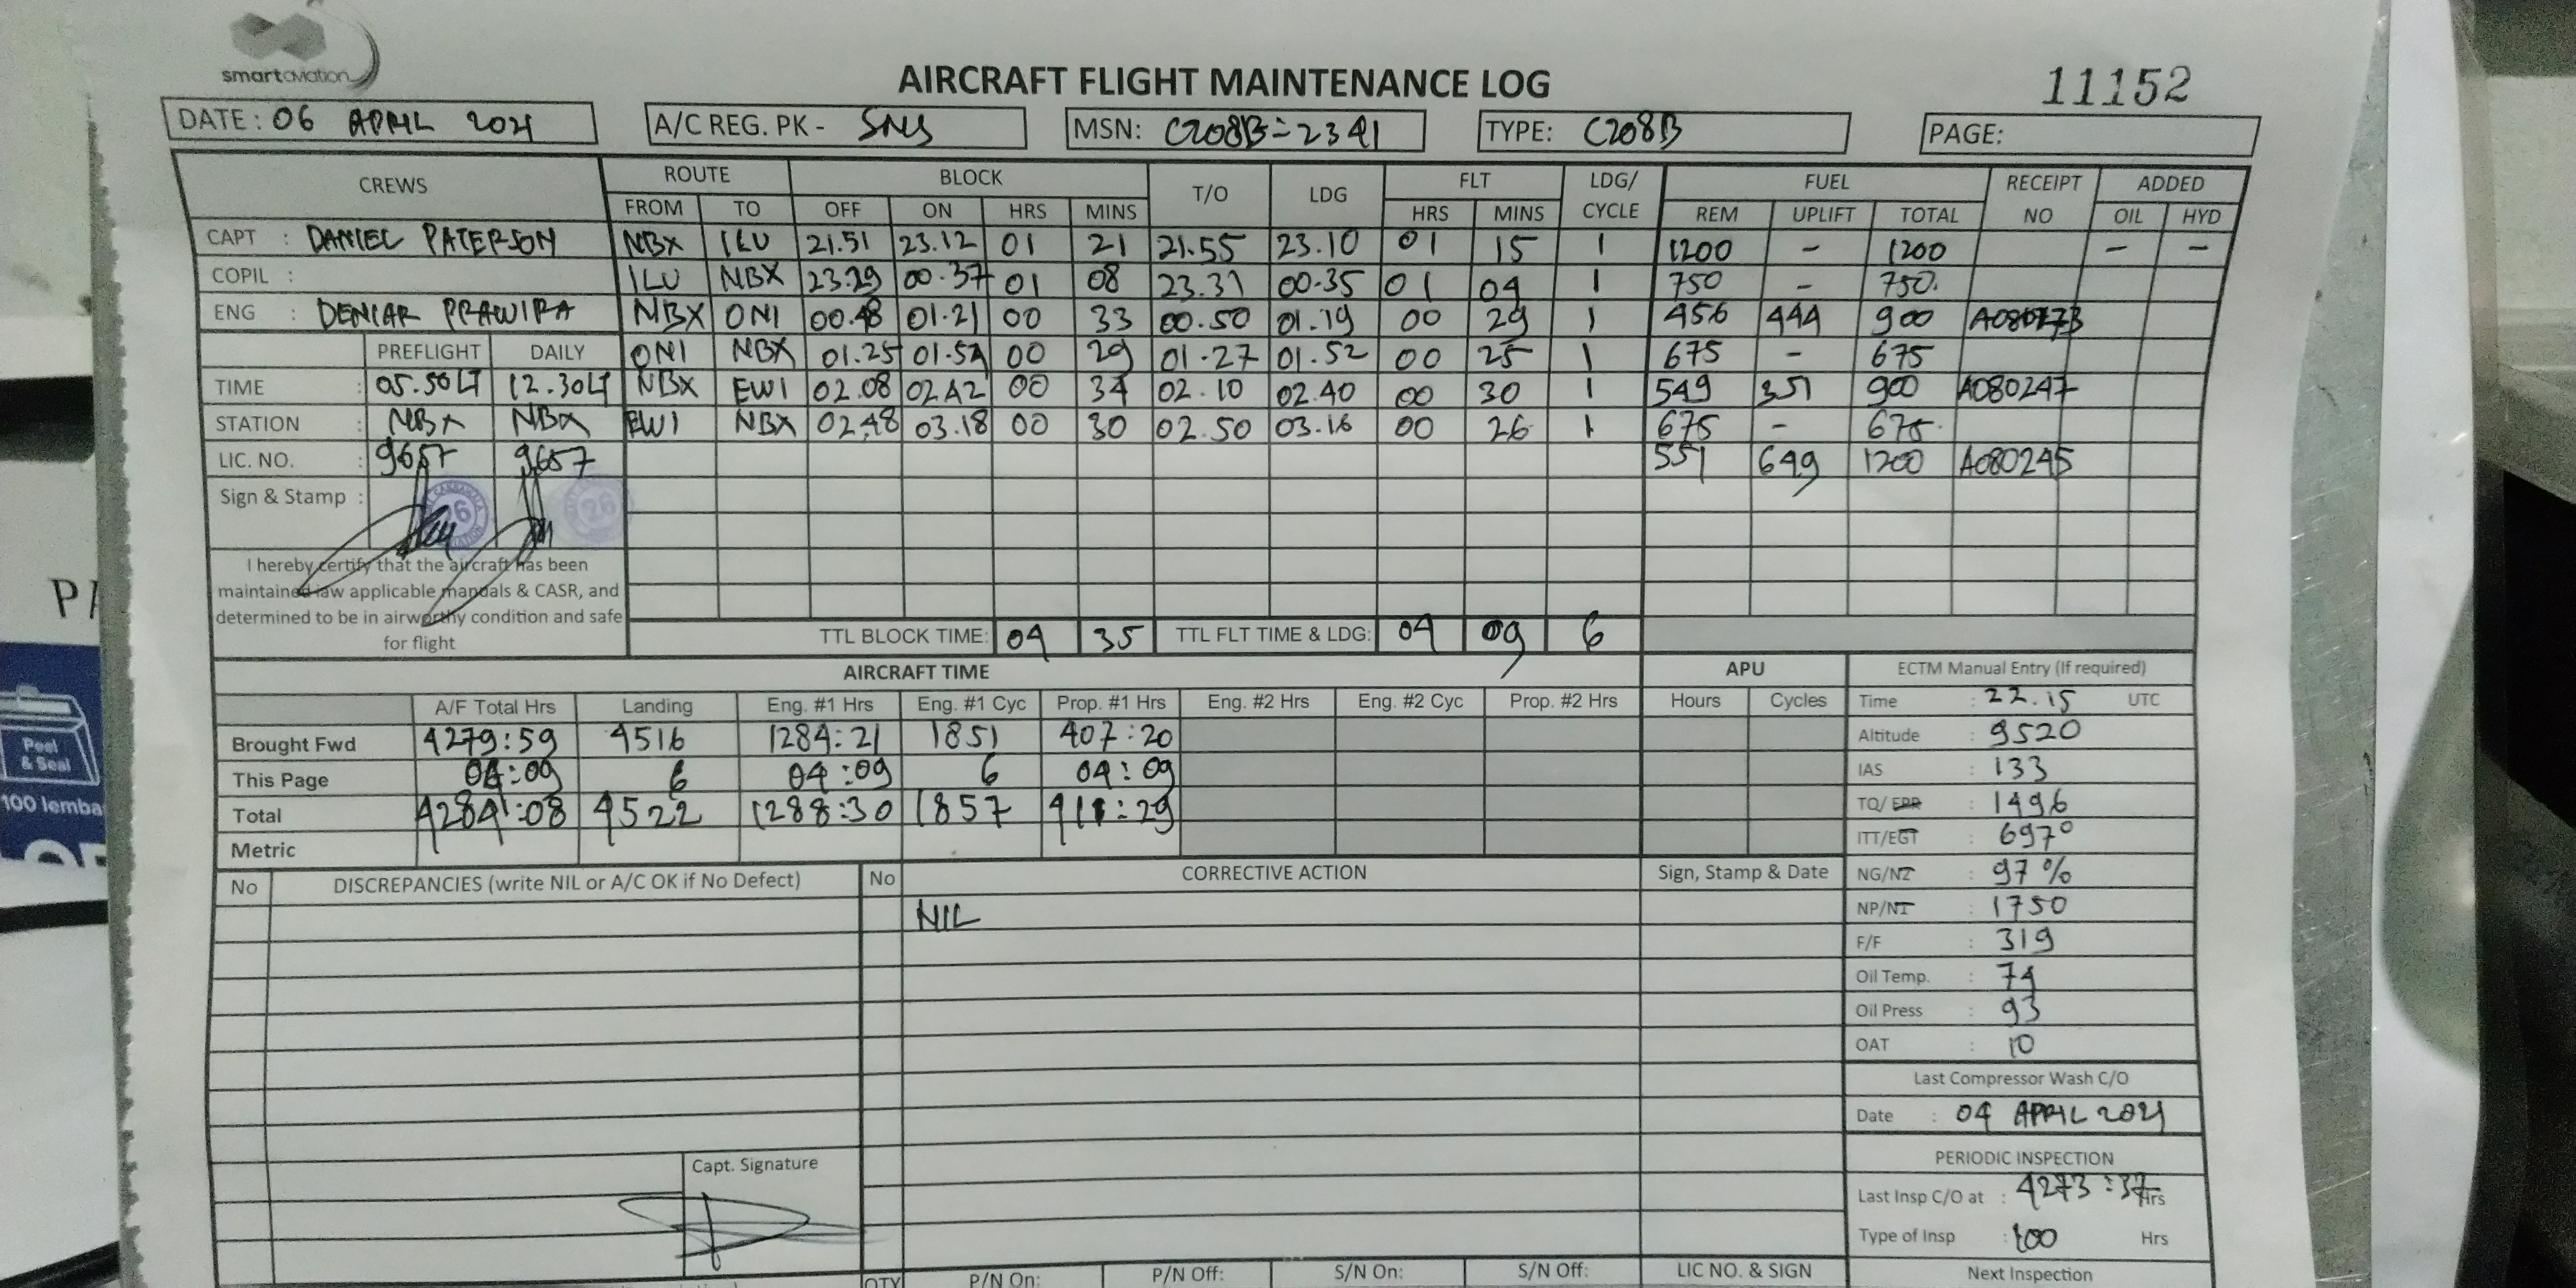 smartaviation
AIRCRAFT FLIGHT MAINTENANCE LOG
11152
DATE: 06 APRIL 2021
A/C REG. PK - SNS
MSN: C208B=2341
TYPE: C208B
PAGE:
CREWS ROUTE BLOCK T/O LDG FLT LDG/ CYCLE FUEL RECEIPT NO ADDED
FROM TO OFF ON HRS MINS HRS MINS REM UPLIFT TOTAL OIL HYD
CAPT : DANIEL PATERSON NBX ILU 21.51 23.12 01 21 21.55 23.10 01 15 1 1200 - 1200 - -
COPIL : ILU NBX 23.29 00.37 01 08 23.31 00.35 01 04 1 750 - 750.
ENG : DENIAR PRAWIRA NBX ONI 00.48 01.21 00 33 00.50 01.19 00 29 1 456 444 900
PREFLIGHT DAILY ONI NBX 01.25 01.54 00 29 01.27 01.52 00 25 1 675 - 675
TIME : 05.50LT 12.30LT NBX EWI 02.08 02.42 00 34 02.10 02.40 00 30 1 549 351 900 A080247
STATION : NBX NBX EWI NBX 02.48 03.18 00 30 02.50 03.16 00 26 1 675 - 675.
LIC. NO. : 9657 9657 551 649 1200 A080245
Sign & Stamp : 26 26
I hereby certify that the aircraft has been
maintained iaw applicable manuals & CASR, and
determined to be in airworthy condition and safe
for flight
TTL BLOCK TIME: 04 35 TTL FLT TIME & LDG: 04 09 6
AIRCRAFT TIME APU
A/F Total Hrs Landing Eng. #1 Hrs Eng. #1 Cyc Prop. #1 Hrs Eng. #2 Hrs Eng. #2 Cyc Prop. #2 Hrs Hours Cycles
Brought Fwd 4279:59 4516 1284:21 1851 407:20
This Page 04:09 6 04:09 6 04:09
Total 4284:08 4522 1288:30 1857 411:29
Metric
ECTM Manual Entry (If required)
Time : 22.15 UTC
Altitude : 9520
IAS : 133
TQ/ EPR : 1496
ITT/EGT : 697°
NG/N2 : 97 %
NP/N1 : 1750
F/F : 319
Oil Temp. : 74
Oil Press : 93
OAT : 10
Last Compressor Wash C/O
Date : 04 APRIL 2021
PERIODIC INSPECTION
Last Insp C/O at : 4273:37 Hrs
Type of Insp : 100 Hrs
Next Inspection
No DISCREPANCIES (write NIL or A/C OK if No Defect) No CORRECTIVE ACTION Sign, Stamp & Date
NIL
Capt. Signature
QTY P/N On: P/N Off: S/N On: S/N Off: LIC NO. & SIGN
Peel
& Seal
100 lemba